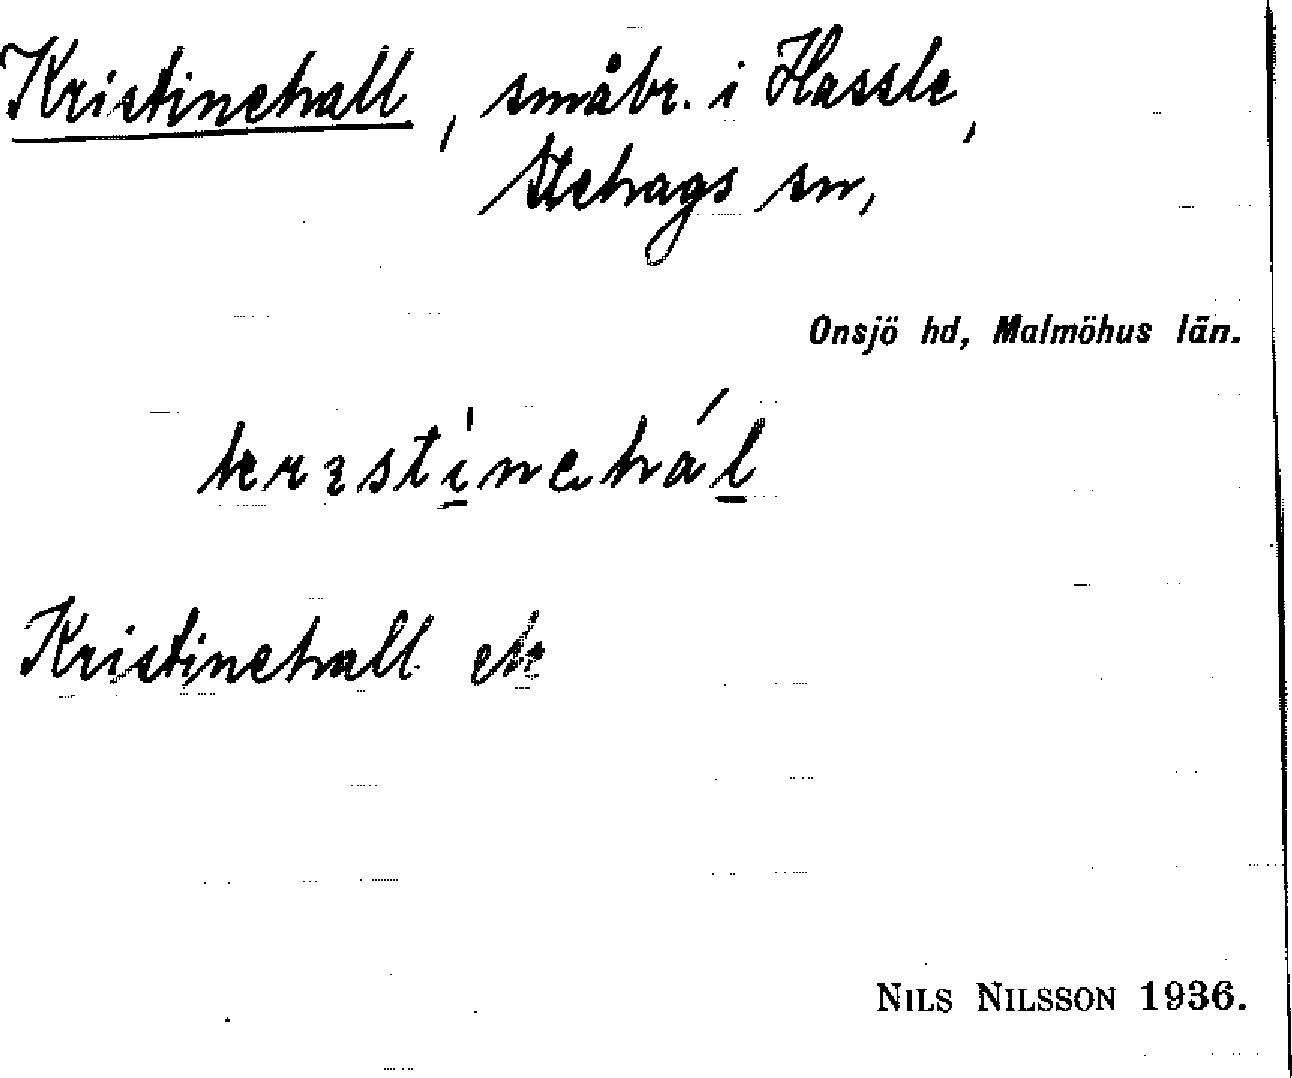 Kristinehall, småbr. i Hassle,
Stehags sn,
Onsjö hd, Malmöhus län.
Kristinehall ek
NILS NILSSON 1936.